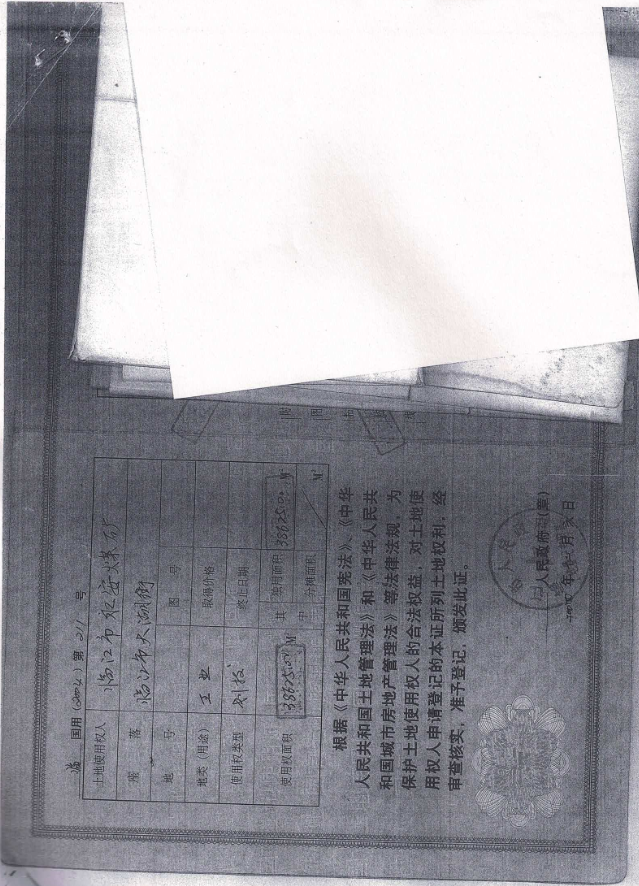 临 国用(2004)第 211 号
土地使用权人 临江市虹安煤矿
座落 临江市大湖街
地号 图号
地类(用途) 工业 取得价格
使用权类型 划拨 终止日期
使用权面积 38625.04 M² 其中 独用面积 38625.04 M²
分摊面积 M²
根据《中华人民共和国宪法》、《中华
人民共和国土地管理法》和《中华人民共
和国城市房地产管理法》等法律法规,为
保护土地使用权人的合法权益,对土地使
用权人申请登记的本证所列土地权利,经
审查核实,准予登记,颁发此证。
人民政府(章)
年 月 日